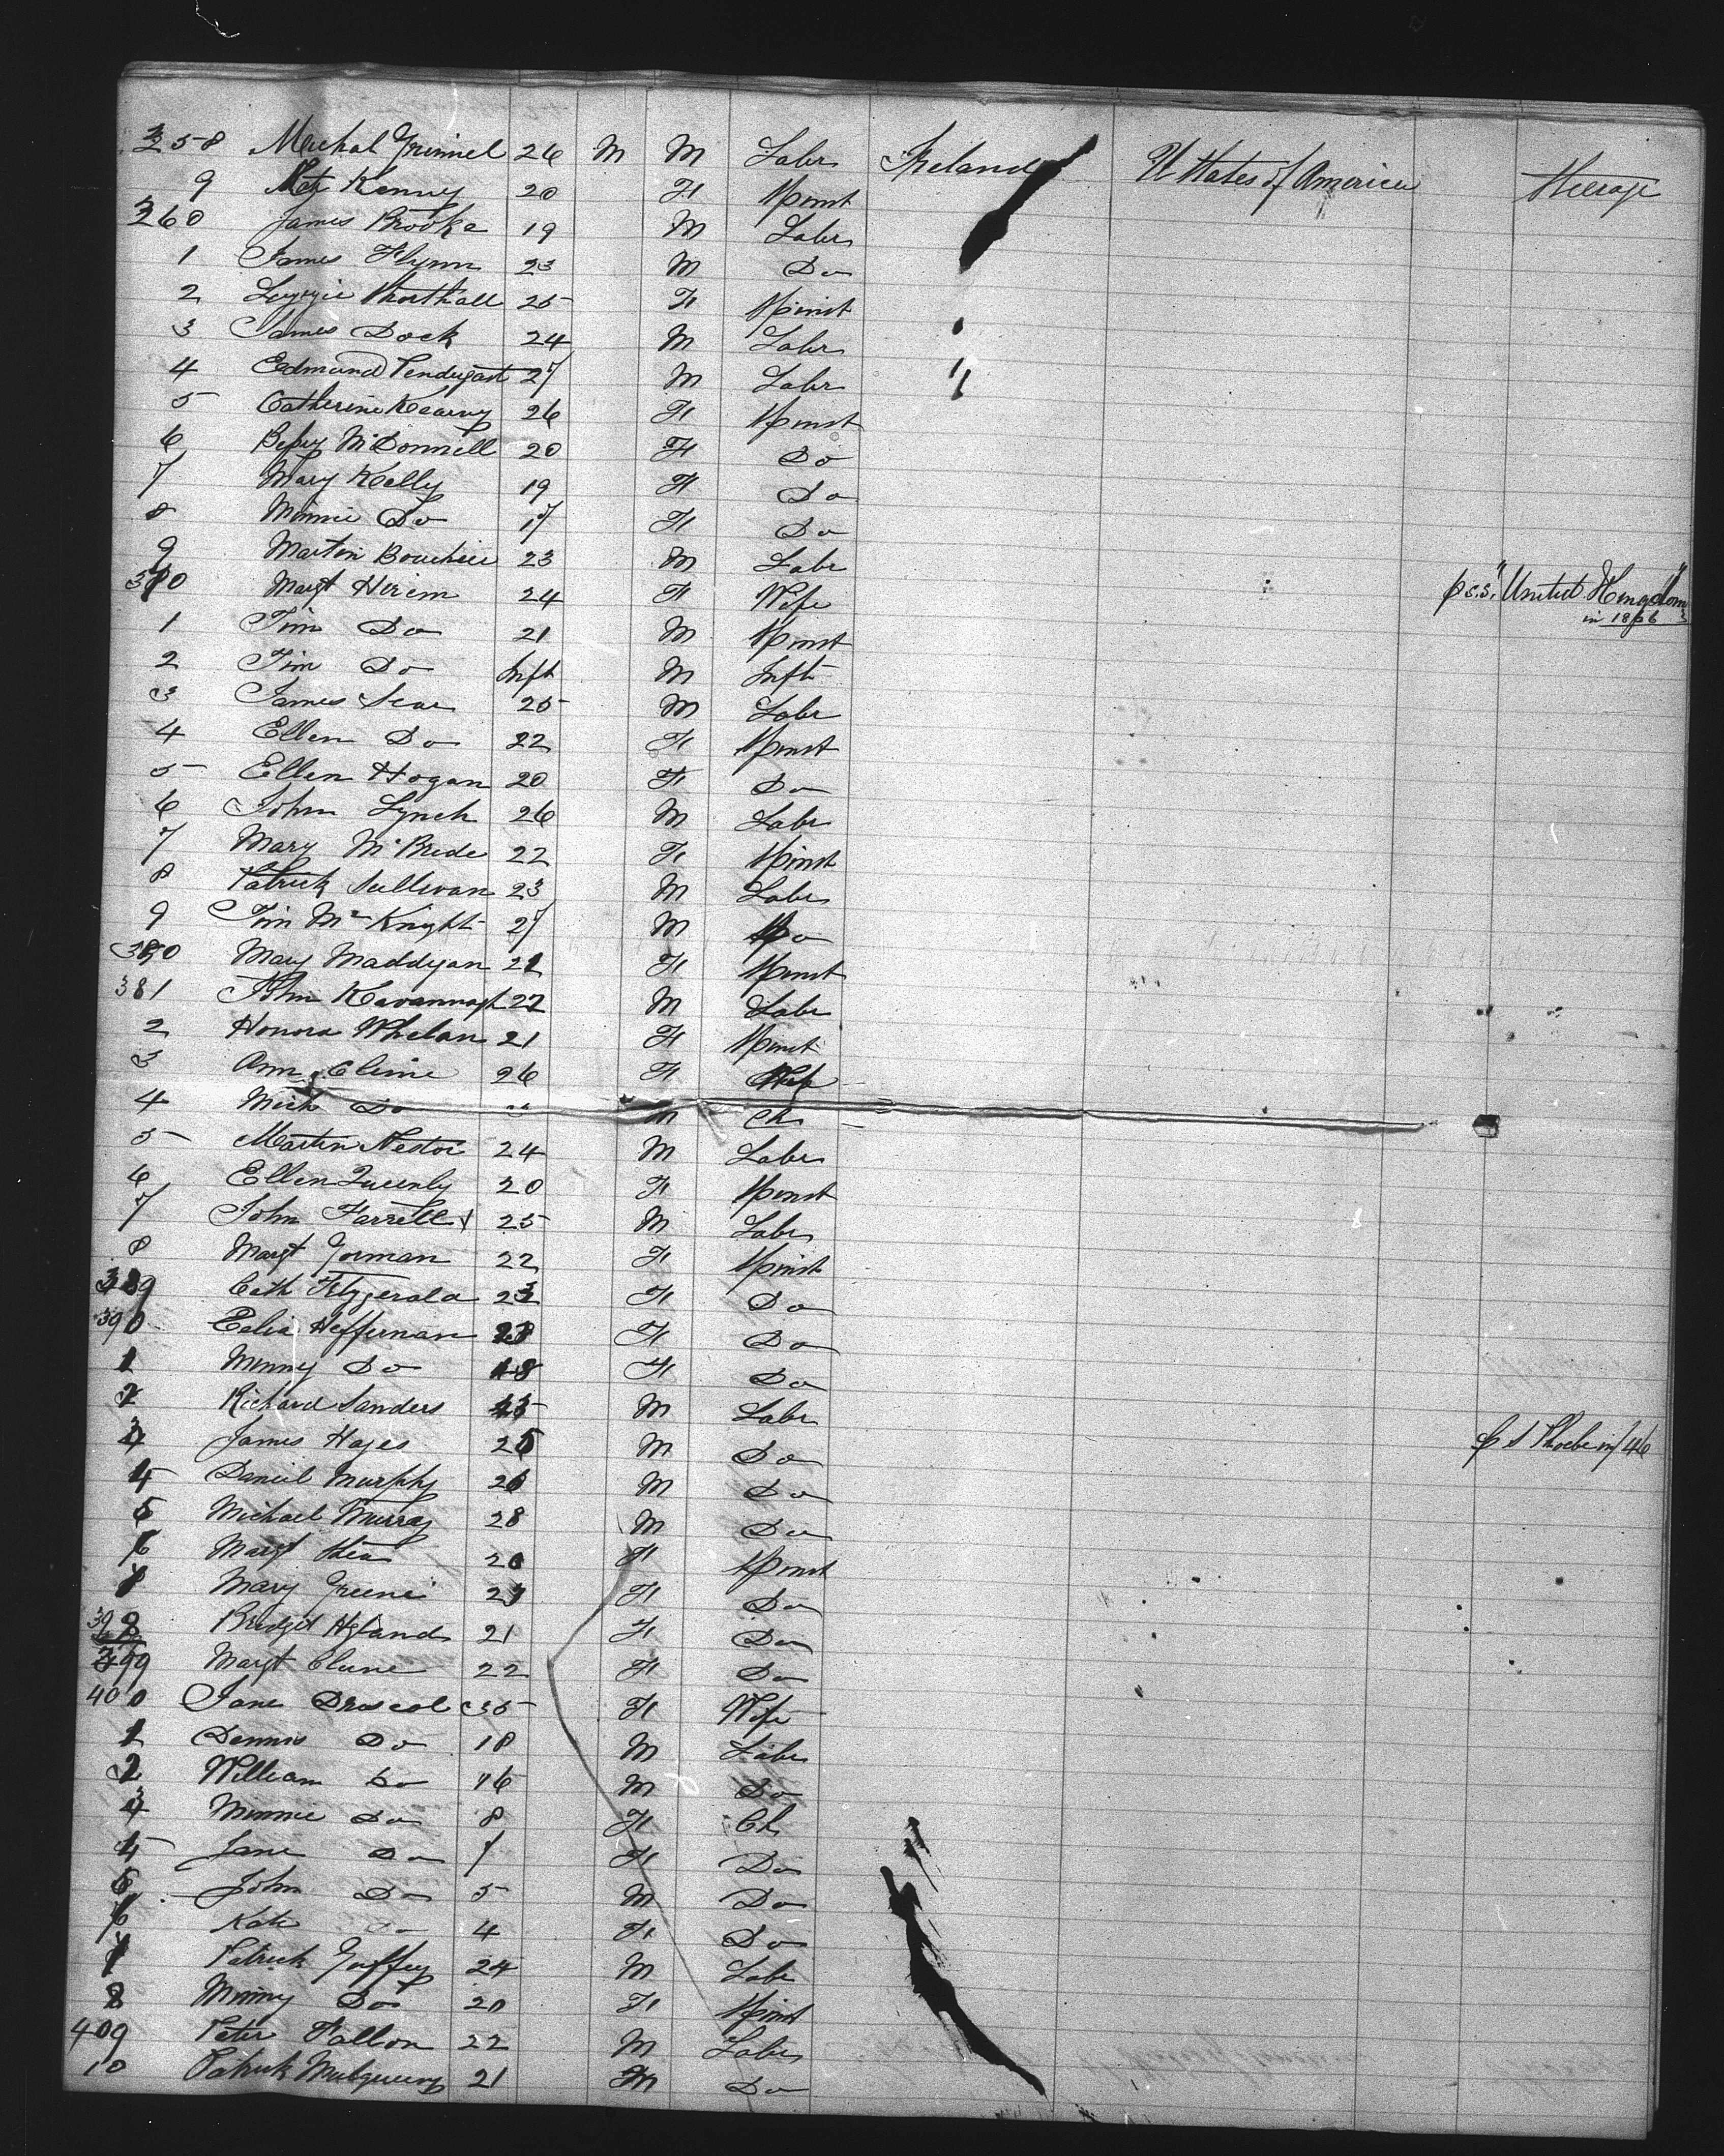 358 Michal Grinnel 26 M M Labr Ireland U States of America Steerage
9 Kate Kenny 20 F Spinst
360 James Brooke 19 M Labr
1 James Flynn 23 M Do
2 Lizzie 25 F Spinst
3 James Dock 24 M Labr
4 Edmund Pendergast 27 M Labr
5 Catherine Kearny 26 F Spinst
6 Betsy McDonnell 20 F Do
7 Mary Kelly 19 F Do
8 Minnie Do 17 F Do
9 Martin 23 M Labr
370 Margt 24 F Wife p S.S. "United Kingdom"
1 Tim Do 21 M Spinst in 1866
2 Tim Do Inft M Inft
3 James 25 M Labr
4 Ellen Do 22 F Spinst
5 Ellen Hogan 20 F Do
6 John Lynch 26 M Labr
7 Mary McBride 22 F Spinst
8 Patrick Sullivan 23 M Labr
9 Tim McKnight 27 M Do
380 Mary Maddigan 21 F Spinst
381 John Kavannagh 22 M Labr
2 Honora Whelan 21 F Spinst
3 Ann Clime 26 F Wife
4 Mich Do M Ch
5 Martin Nestor 24 M Labr
6 Ellen Queenly 20 F Spinst
7 John Farrell 25 M Labr
8 Margt Gorman 22 F Spinst
389 Cath Fitzgerald 23 F Do
390 Celia Heffernan F Do
1 Winny Do 18 F Do
2 Richard Sanders M Labr
3 James Hayes 25 M Do p S Phoebe in /46
4 Daniel Murphy 26 M Do
5 Michael Murray 28 M Do
6 Margt 20 F Spinst
7 Mary Greene 23 F Do
398 Bridget Hyland 21 F Do
399 Margt Clune 22 F Do
400 Jane Driscol 35 F Wife
1 Dennis Do 18 M Labr
2 William Do 16 M Do
3 Minnie Do 8 F Ch
4 Jane Do 7 F Do
5 John Do 5 M Do
6 Kate Do 4 F Do
7 Patrick Guffey 24 M Labr
8 Minny Do 20 F Spinst
409 Peter Fallon 22 M Labr
10 Patrick 21 M Do